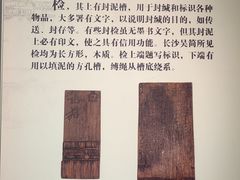 检，其上有封泥槽，用于封缄和标识各种
物品，大多署有文字，以说明封缄的目的，如传
送、封存等。有些封检虽无墨书文字，但其封泥
上必有印文，使之具有信用功能。长沙吴简所见
检均为长方形，木质。检上端题写标识，下端有
用以填泥的方孔槽，缚绳从槽底绕系。